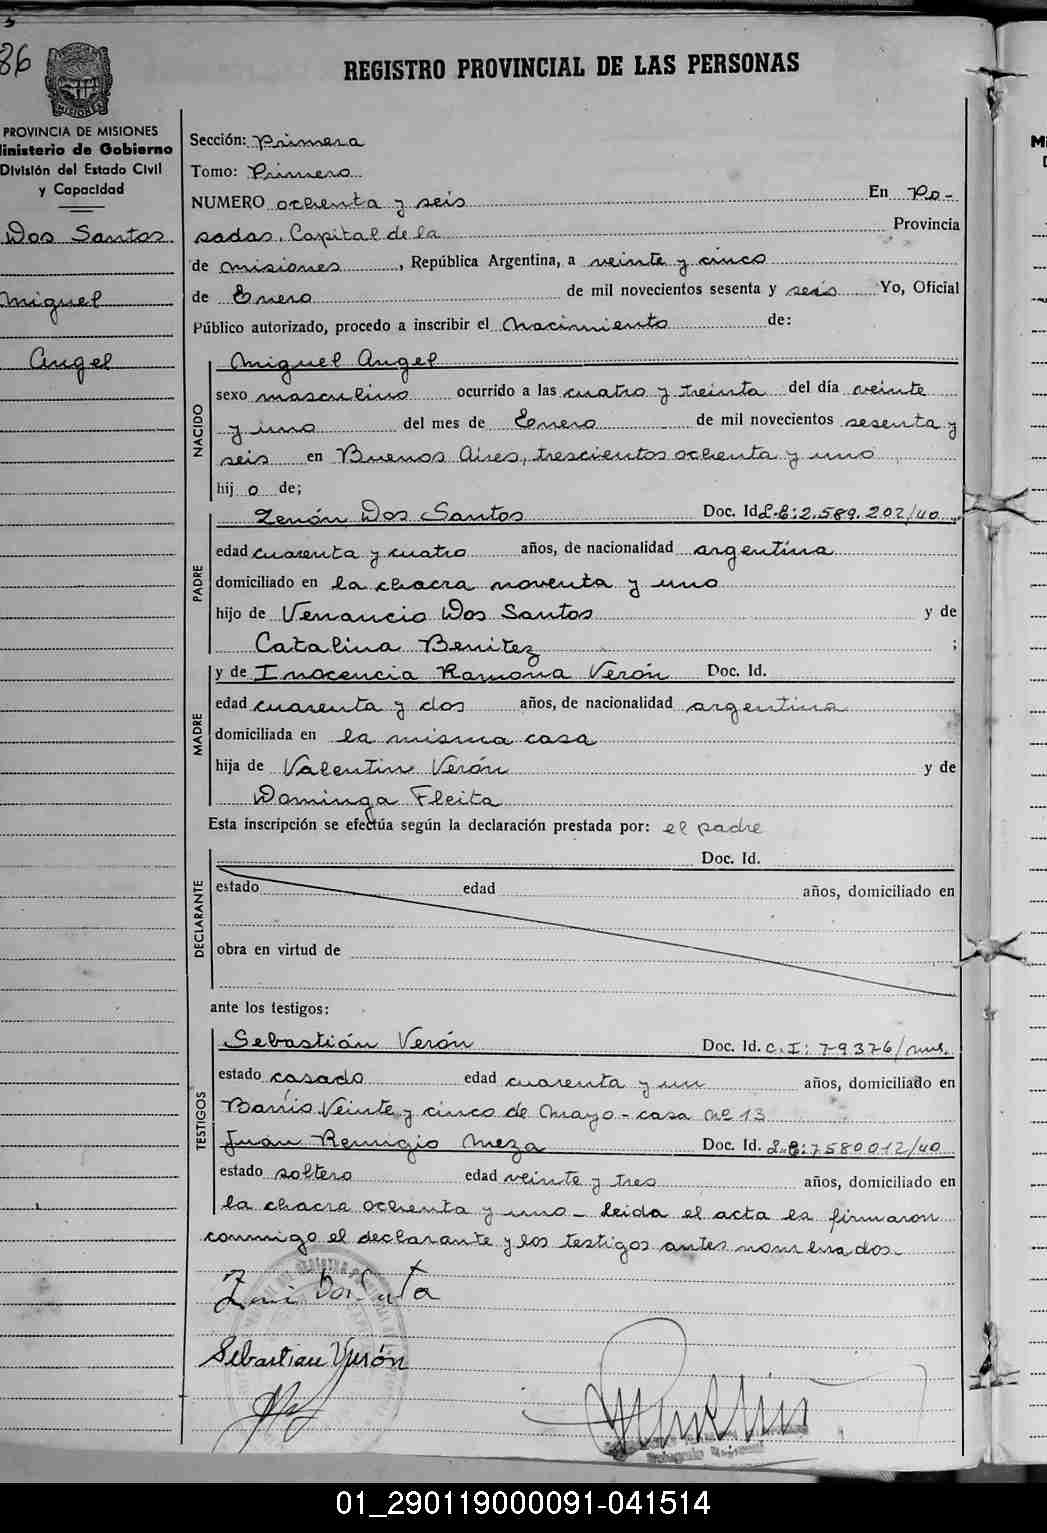 86
MISIONES
PROVINCIA DE MISIONES
inisterio de Gobierno
División del Estado Civil
y Capacidad
Dos Santos
Miguel
Angel
REGISTRO PROVINCIAL DE LAS PERSONAS
Sección: Primera
Tomo: Primero
NUMERO ochenta y seis En Po-
sadas, Capital de la Provincia
de Misiones, República Argentina, a veinte y cinco
de Enero de mil novecientos sesenta y seis Yo, Oficial
Público autorizado, procedo a inscribir el Nacimiento de:
NACIDO
Miguel Angel
sexo masculino ocurrido a las cuatro y treinta del día veinte
y uno del mes de Enero de mil novecientos sesenta y
seis en Buenos Aires, trescientos ochenta y uno
hij o de;
PADRE
Zenón Dos Santos Doc. Id. L.E: 2.589.202/40
edad cuarenta y cuatro años, de nacionalidad argentina
domiciliado en la chacra noventa y uno
hijo de Venancio Dos Santos y de
Catalina Benitez ;
MADRE
y de Inocencia Ramona Verón Doc. Id.
edad cuarenta y dos años, de nacionalidad argentina
domiciliada en la misma casa
hija de Valentin Verón y de
Dominga Fleita
Esta inscripción se efectúa según la declaración prestada por: el padre
DECLARANTE
Doc. Id.
estado edad años, domiciliado en
obra en virtud de
ante los testigos:
TESTIGOS
Sebastián Verón Doc. Id. C.I: 79376/mns.
estado casado edad cuarenta y un años, domiciliado en
Barrio Veinte y cinco de Mayo - casa Nº 13
Juan Remigio Meza Doc. Id. L.E: 7580012/40
estado soltero edad veinte y tres años, domiciliado en
la chacra ochenta y uno - leida el acta la firmaron
conmigo el declarante y los testigos antes nombrados.
Sebastian Verón
01_290119000091-041514